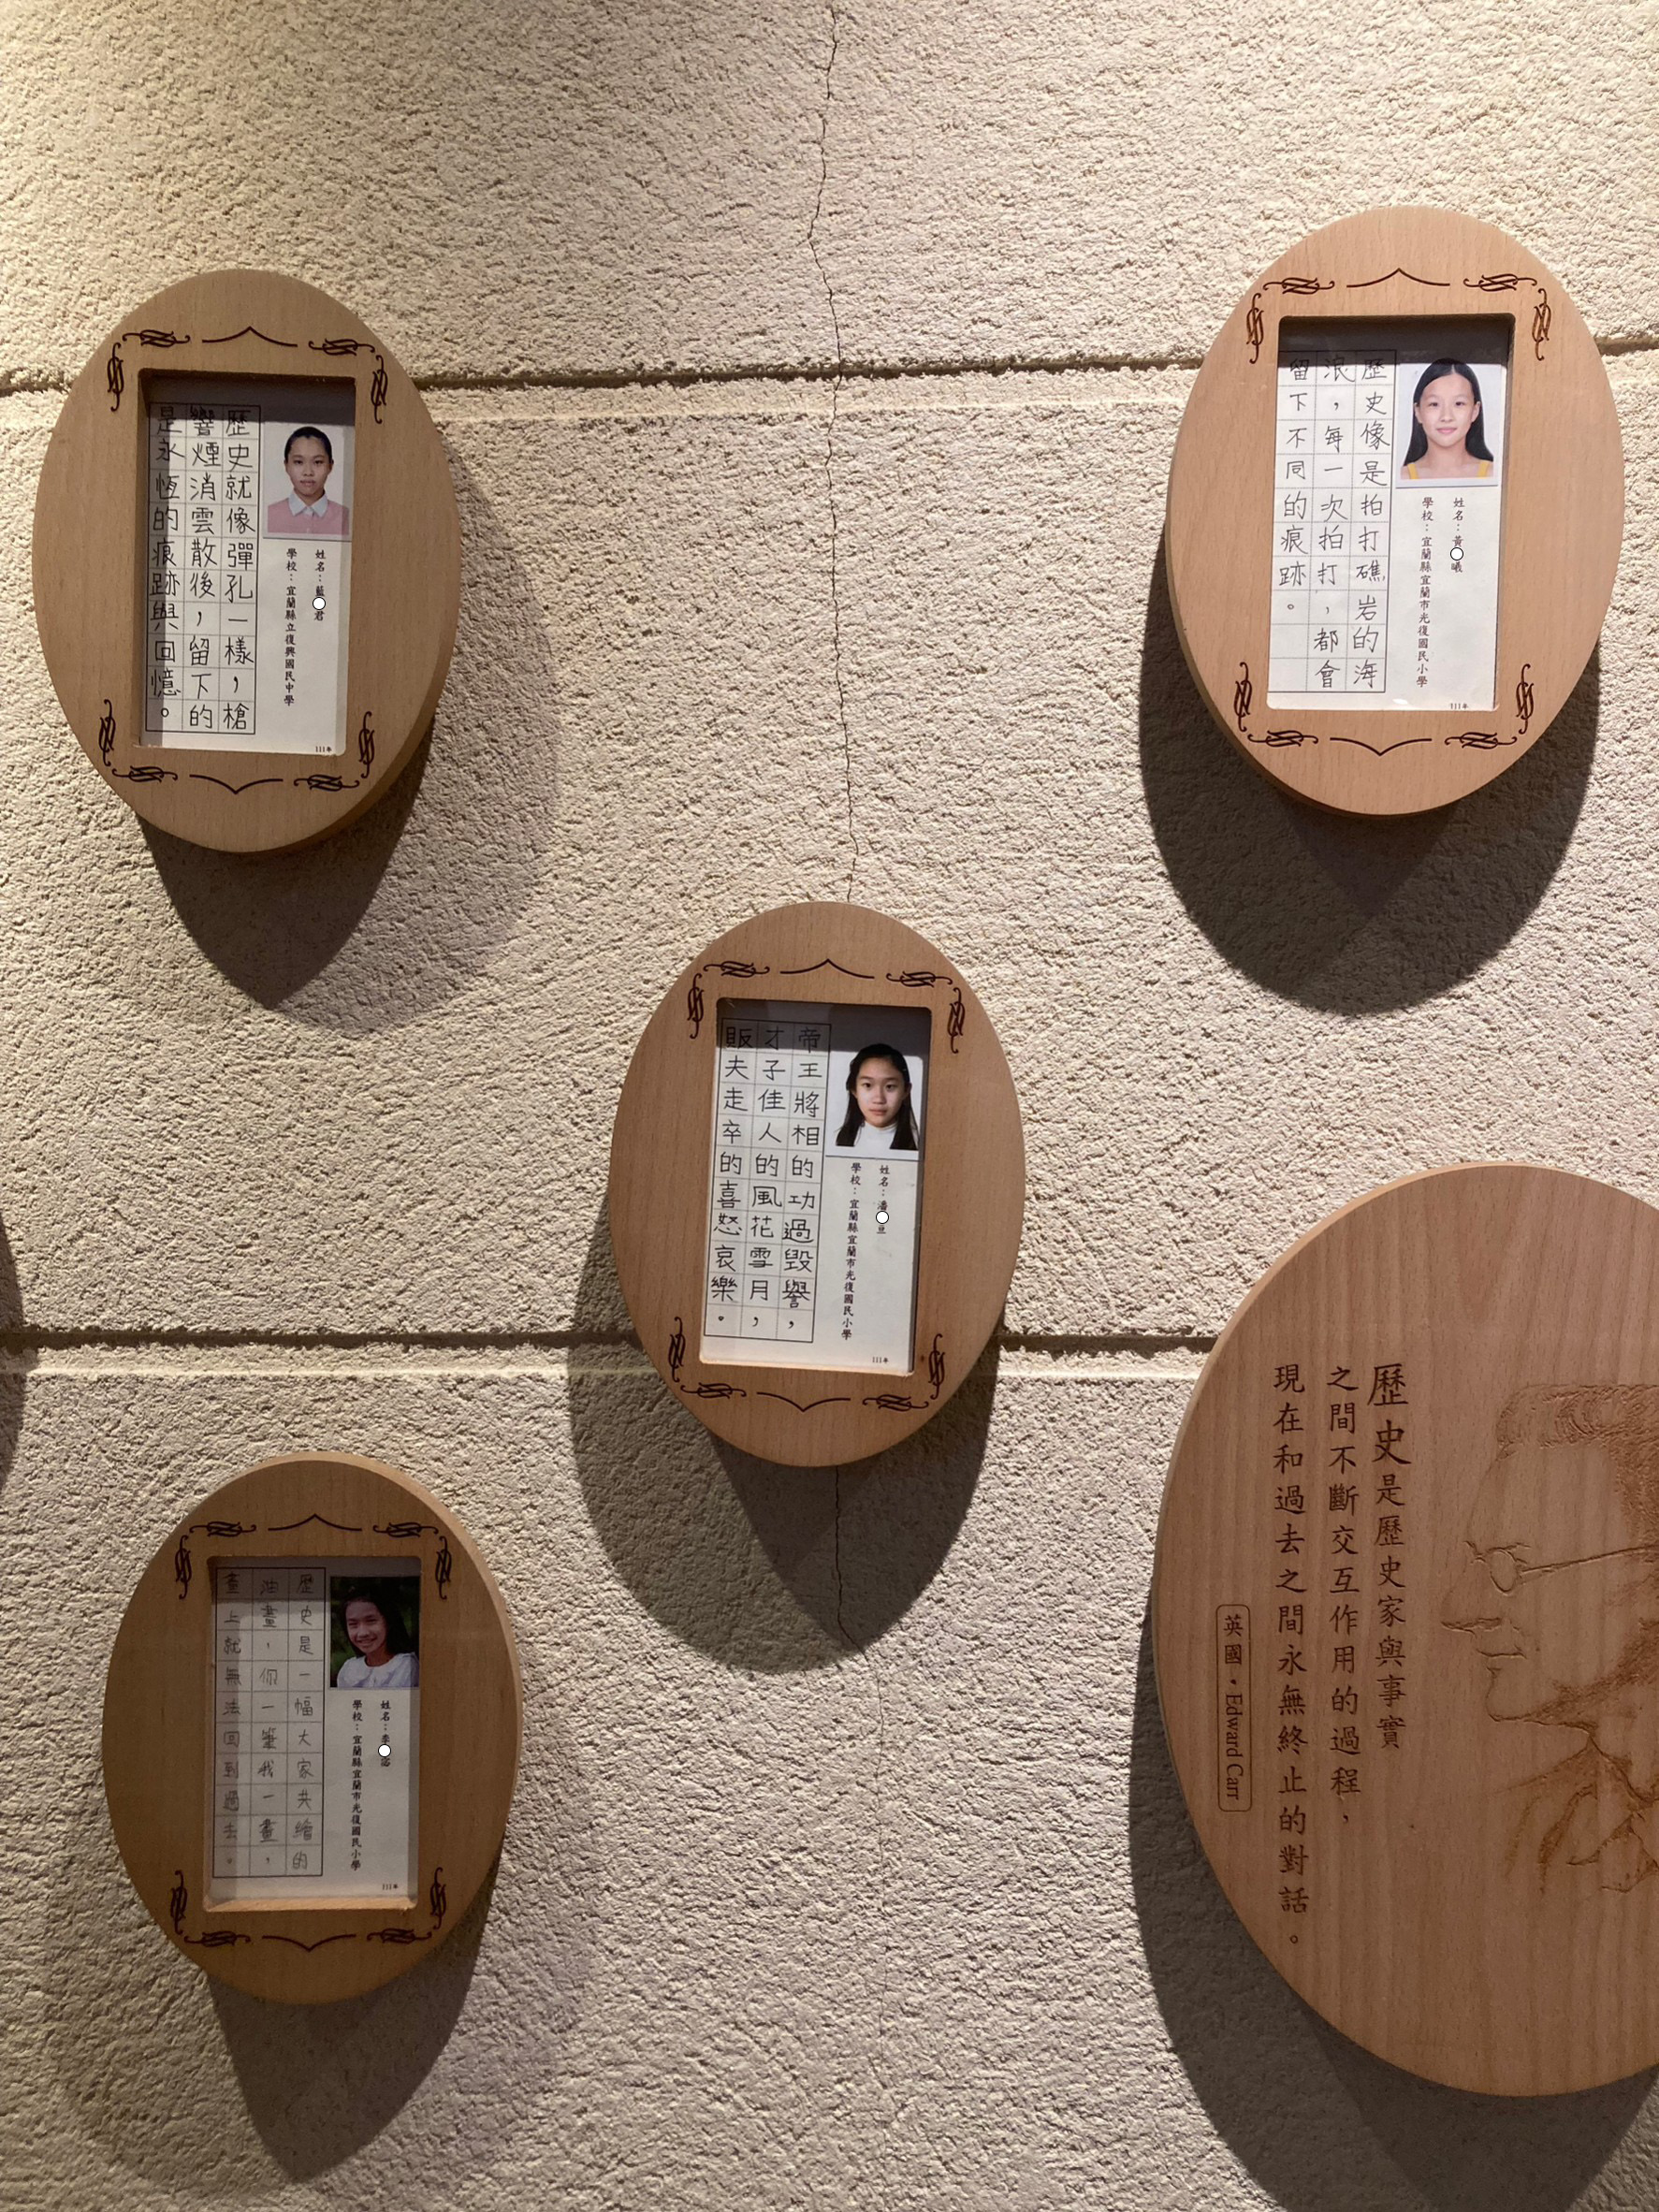 姓名：藍 君
學校：宜蘭縣立復興國民中學
歷史就像彈孔一樣，槍
響煙消雲散後，留下的
是永恆的痕跡與回憶。
111年
姓名：黃 曦
學校：宜蘭縣宜蘭市光復國民小學
歷史像是拍打礁岩的海
浪，每一次拍打，都會
留下不同的痕跡。
111年
姓名：潘 亘
學校：宜蘭縣宜蘭市光復國民小學
帝王將相的功過毀譽，
才子佳人的風花雪月，
販夫走卒的喜怒哀樂。
111年
姓名：李
學校：宜蘭縣宜蘭市光復國民小學
歷史是一幅大家共繪的
油畫，你一筆我一畫，
畫上就無法回到過去。
111年
歷史是歷史家與事實
之間不斷交互作用的過程，
現在和過去之間永無終止的對話。
英國・Edward Carr